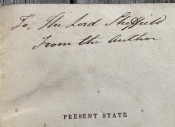 To, The Lord Sheffield
From the Author
PRESENT STATE